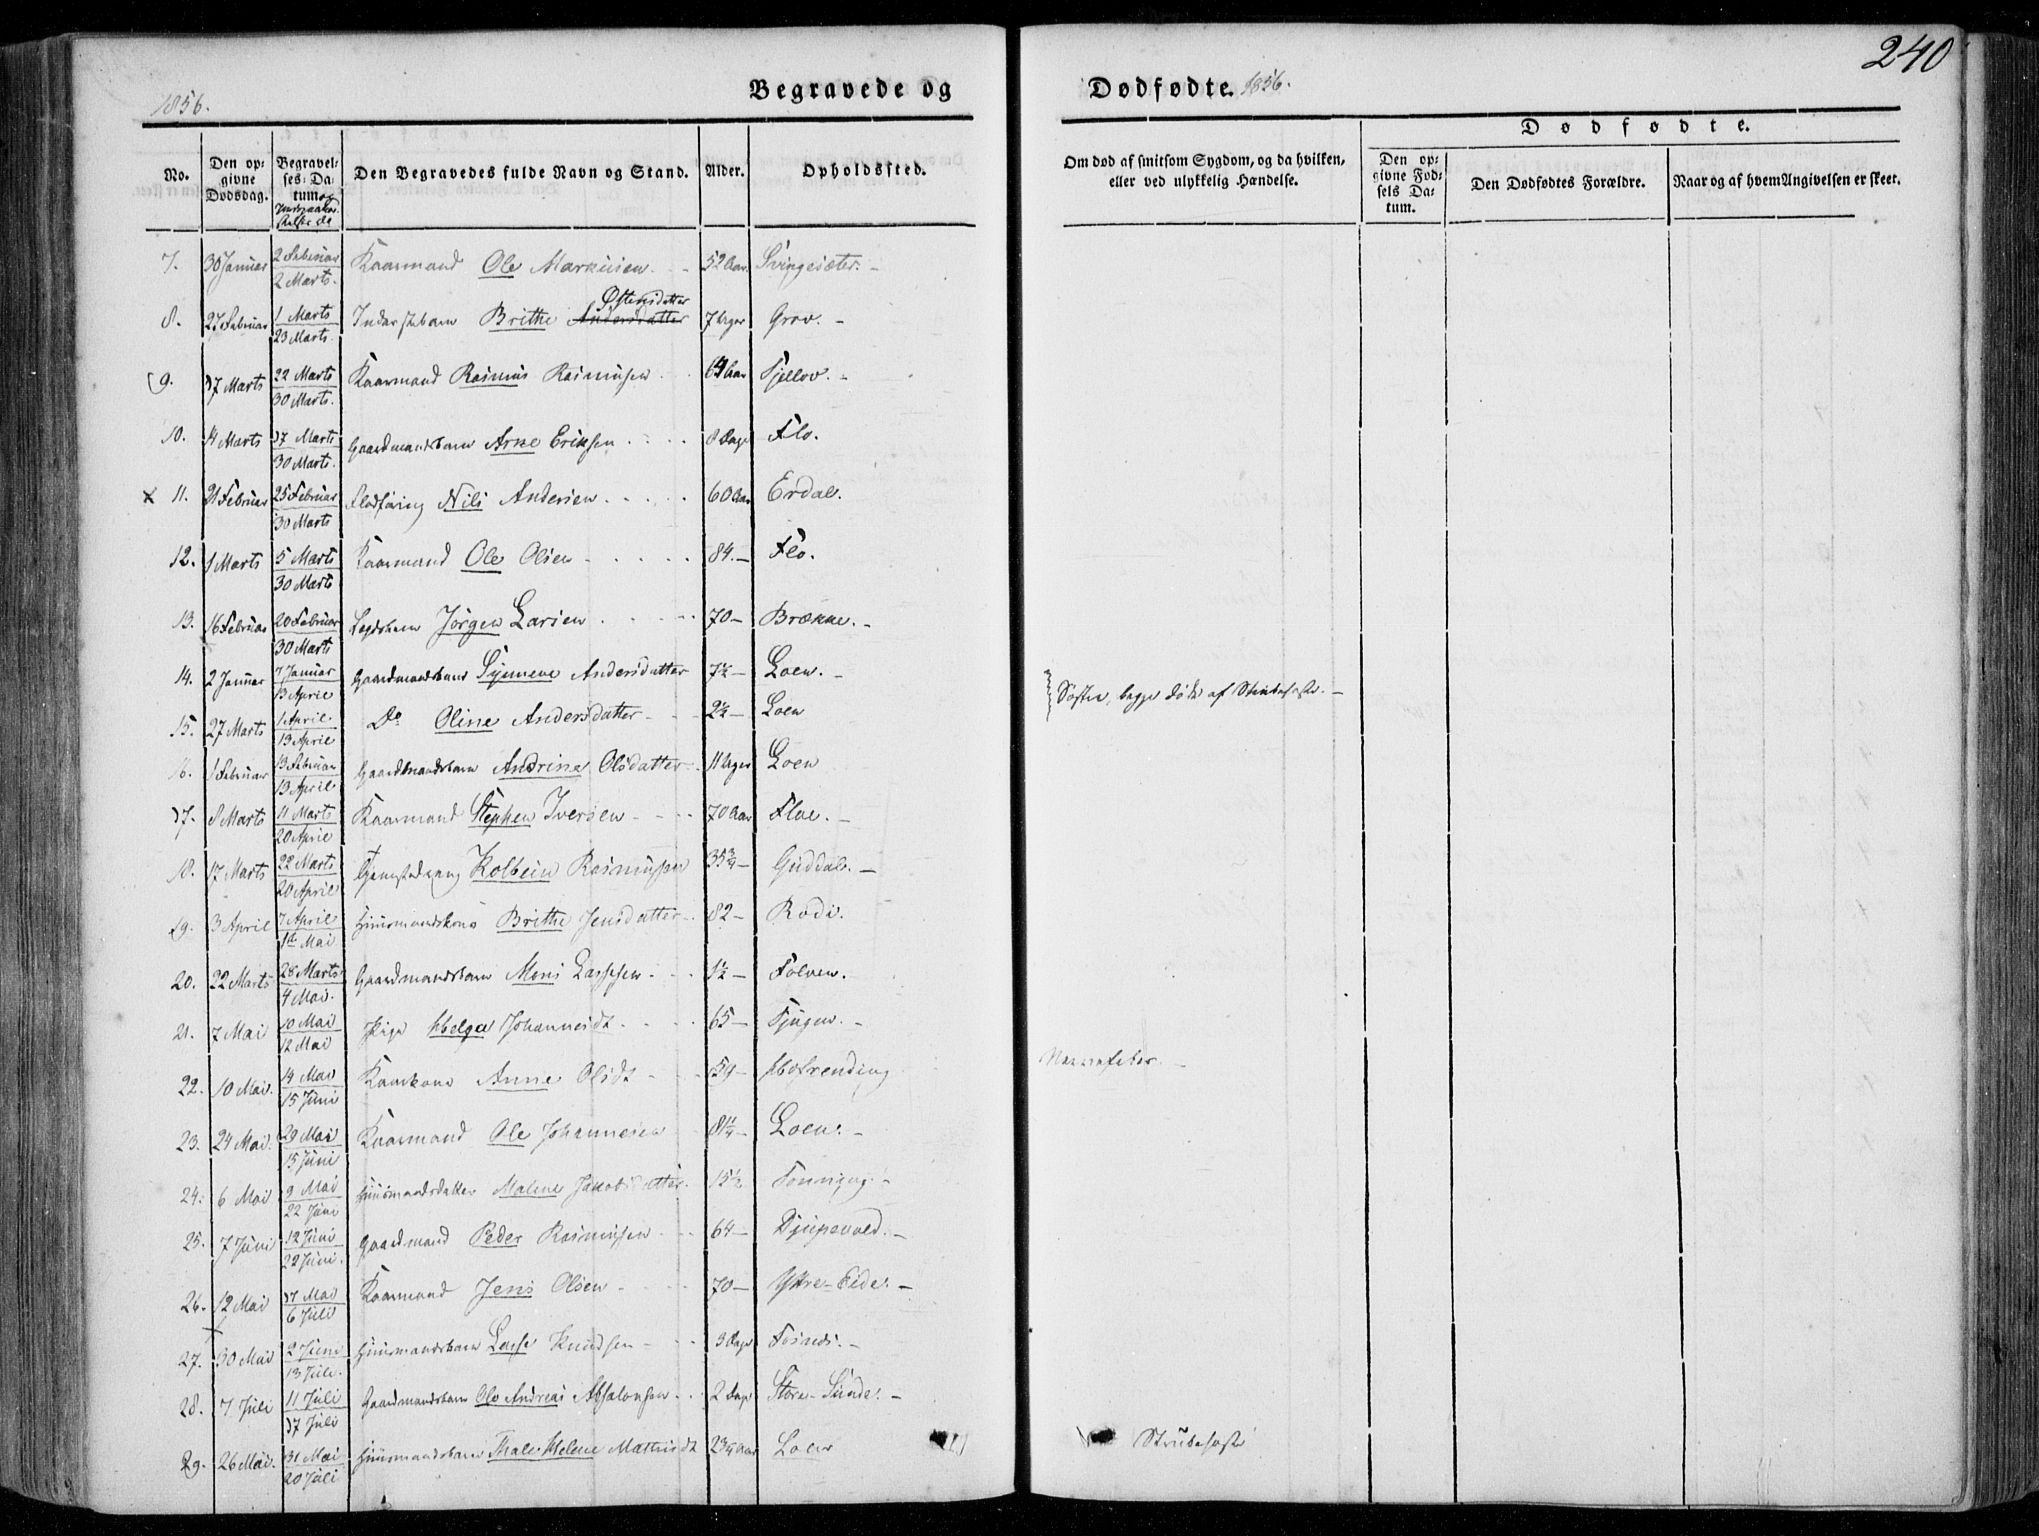 240
1856.
Begravede og
Dødfødte. 1856.
No.
Den opgivne Dødsdag.
Begravelses-Datum og
Den Begravedes fulde Navn og Stand.
Alder.
Opholdssted.
Om død af smitsom Sygdom, og da hvilken, eller ved ulykkelig Hændelse.
Dødfødte.
Den opgivne Fødsels Datum.
Den Dødfødtes Forældre.
Naar og af hvem Angivelsen er skeet.
7. 30 Januar 2 Februar 2 Marts. Kaarmand Ole Markusen 52 Aar Svingesæter.
8. 27 Februar 1 Marts 23 Marts. Inderstebarn Brithe Andersdatter Østensdatter 7 Uger Grov.
9. 17 Marts 22 Marts 30 Marts. Kaarmand Rasmus Rasmusen 64 Aar Tjellov.
10. 14 Marts 17 Marts 30 Marts. Gaardmandsbarn Arne Eriksen 8 Dage Flo.
x 11. 21 Februar 25 Februar 30 Marts Fladføring Nils Andersen 60 Aar Erdal.
12. 1 Marts 5 Marts 30 Marts Kaarmand Ole Olsen 84. Flo.
13. 16 Februar 20 Februar 30 Marts Legdsbarn Jørgen Larsen 70 Brække.
14. 2 Januar 7 Januar 13 Aprie Gaardmandsbarn Synneve Andersdatter 7½ Loen.
Søstre, begge døde af Strubehoste.
15. 27 Marts 1 Aprie 13 Aprie Do Oline Andersdatter 2½ Loen
16. 1 Februar 13 Februar 13 Aprie Gaardmandsbarn Andrine Olsdatter 11 Uger Loen
17. 8 Marts 11 Marts 20 Aprie Kaarmand Stephen Iversen 70 Aar Floe.
18. 17 Marts 22 Marts 20 Aprie Kolbein Rasmussen 35¾ Guddal.
19. 3 Aprie 7 Aprie 1te Mai Huusmandskone Brithe Jensdatter 82 Rodi.
20. 22 Marts 28 Marts 4 Mai. Gaardmandsbarn Mons Lassesen 1½ Folven.
21. 7 Mai 10 Mai 12 Mai Pige Helga Johannesdt. 65 Tjugen.
22. 10 Mai. 14 Mai 15 Juni Kaarkone Anne Olsdt 59 Hofrending
Nervefeber.
23. 24 Mai. 29 Mai 15 Juni Kaarmand Ole Johannesen 81¼ Loen.
24. 6 Mai 9 Mai 22 Juni Huusmandsdatter Malene Jakobsdatter 15½ Tonning.
25. 7 Juni 12 Juni 22 Juni. Gaardmand Peder Rasmussen 64 Djupevold.
26. 12 Mai 17 Mai 6 Juli Kaarmand Jens Olsen 70 Ytre-Eide.
27. 30 Mai 2 Juni 13 Juli. Huusmandsbarn Lasse Knudsen 3 Dage Fosnes.
28. 7 Juli 11 Juli 17 Juli Gaardmandsbarn Ole Andreas Absalonsen 2 Dage Store-Sunde.
29. 26 Mai. 31 Mai 20 Juli Huusmandsbarn Thale Helene Mathisdt 2¾ Aar Loen
Strubehoste